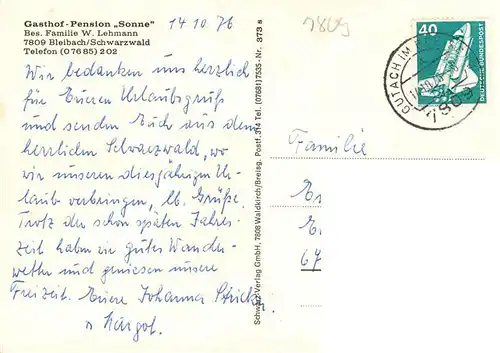 Gasthof-Pension „Sonne"
Bes. Familie W. Lehmann
7809 Bleibach/Schwarzwald
Telefon (07685) 202
14 10 76
Wir bedanken uns herzlich
für Eueren Urlaubsgruß
und senden Euch aus dem
herrlichen Schwarzwald, wo
wir unseren diesjährigen Ur-
laub verbringen, lb. Grüße.
Trotz der schon späten Jahres-
zeit haben wir gutes Wander-
wetter und geniesen unsere
Freizeit. Euere Johanna
u Margot.
Schwarz-Verlag GmbH, 7808 Waldkirch/Breisg. Postf. 314 Tel. (07681) 7535 - Nr. 373 s
7809
40
DEUTSCHE BUNDESPOST
GUTACH IM
7809
Familie
67